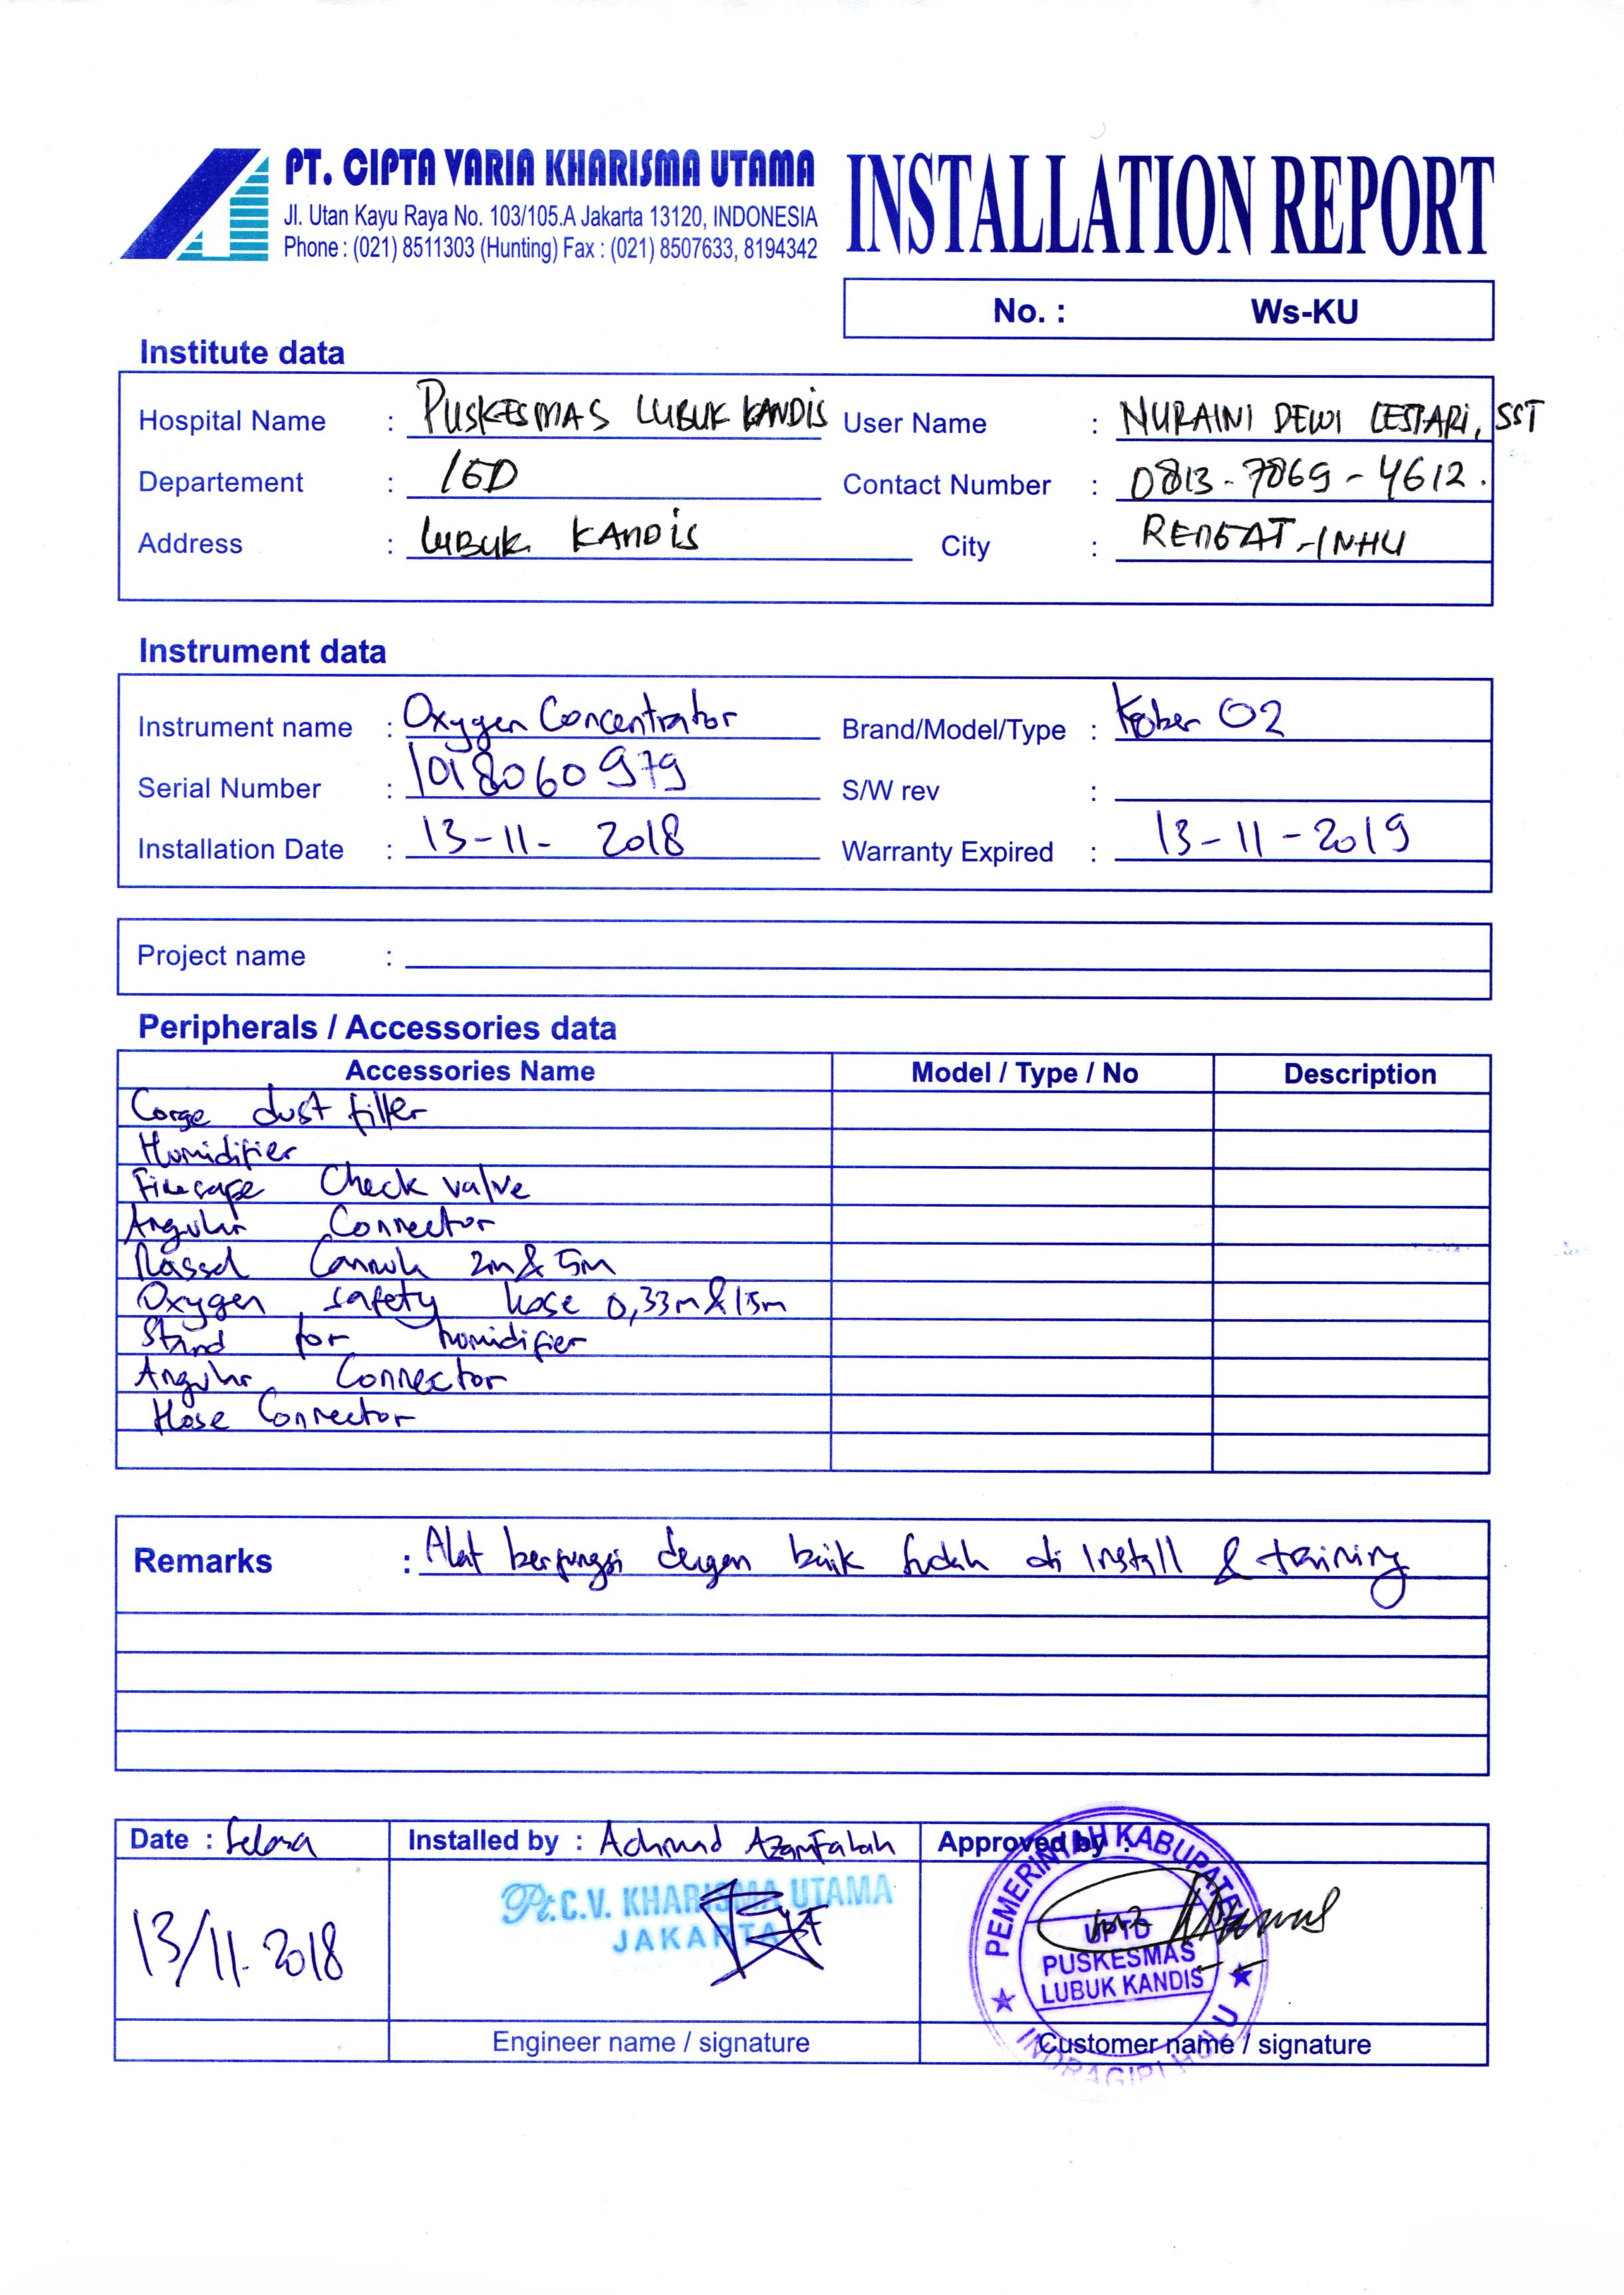 PT. CIPTA VARIA KHARISMA UTAMA
Jl. Utan Kayu Raya No. 103/105.A Jakarta 13120, INDONESIA
Phone : (021) 8511303 (Hunting) Fax : (021) 8507633, 8194342
INSTALLATION REPORT
No. : Ws-KU
Institute data
Hospital Name : PUSKESMAS LUBUK KANDIS User Name : NURAINI DEWI LESTARI, SST
Departement : IGD Contact Number : 0813-7869-4612.
Address : LUBUK KANDIS City : RENGAT-INHU
Instrument data
Instrument name : Oxygen Concentrator Brand/Model/Type : Kober O2
Serial Number : 1018060979 S/W rev :
Installation Date : 13-11- 2018 Warranty Expired : 13-11-2019
Project name :
Peripherals / Accessories data
Accessories Name Model / Type / No Description
dust filter
Humidifier
Check valve
Angular Connector
2m & 5m
Oxygen safety hose 0,33m & 15m
Stand for humidifier
Angular Connector
Hose Connector
Remarks : Alat berfungsi dengan baik sudah di Install & training
Date : Selasa Installed by : Achmad Azam Falah Approved by :
13/11.2018
Pt.C.V. KHARISMA UTAMA
JAKARTA
PEMERINTAH KABUPATEN
UPTD
PUSKESMAS
LUBUK KANDIS
INDRAGIRI HULU
Engineer name / signature Customer name / signature